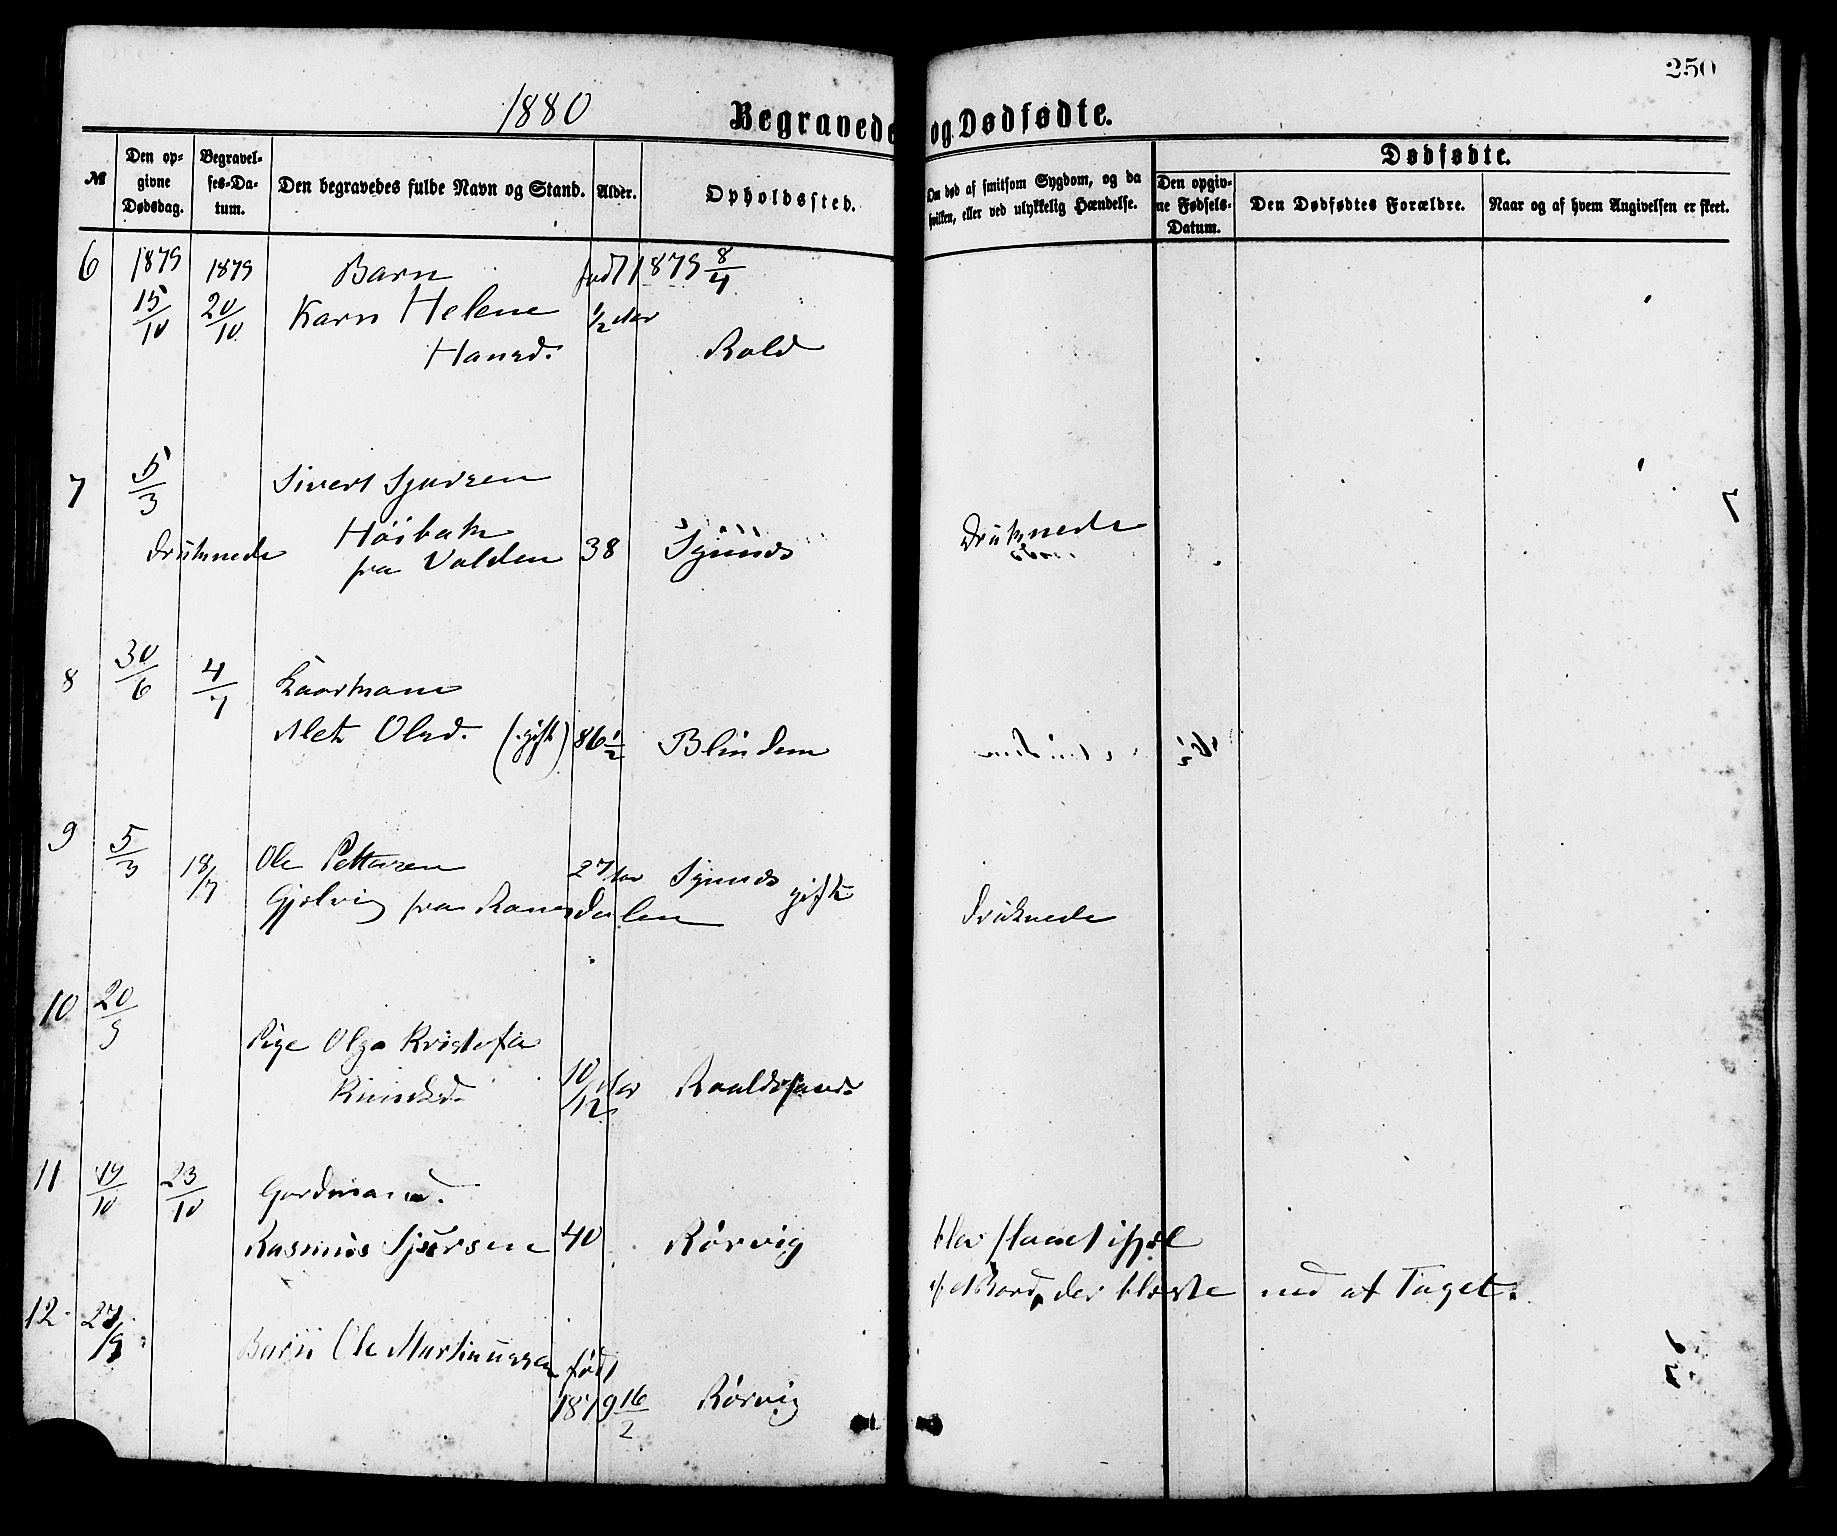 250
1880
Begravede og Dødfødte.
№
Den opgivne Dødsdag.
Begravelses-Datum.
Den begravedes fulde Navn og Stand.
Alder.
Opholdssted.
Om død af smitsom Sygdom, og da hvilken, eller ved ulykkelig Hændelse.
Dødfødte.
Den opgivne Fødsels-Datum.
Den Dødfødtes Forældre.
Naar og af hvem Angivelsen er skeet.
6 1879 1879 Barn født 1879 8/4
15/10 20/10 Karn Helene 1/2 Aar
Hansd. Rold
7 5/3 Sivert Sjursen
druknede Høibak 38 Sjunds Druknede
fra Volden
8 30/6 4/7 Kaarkone
Alet Olsd. (gift) 86 1/2 Blindem
9 5/3 18/7 Ole Pettersen 27 Aar Sjunds gift
Gjelvig fra Romsdalen druknede
10 20/9
Pige Olga Kristofia
10/12 Aar Roaldssand
11 19/10 23/10 Gardmand.
Rasmus Sjursen 40 Rørvig blev slaaet ihjel
af Bord, der blæste ned af Taget.
12 27/9
Barn Ole Martinussen født
1879 16/2 Rørvig